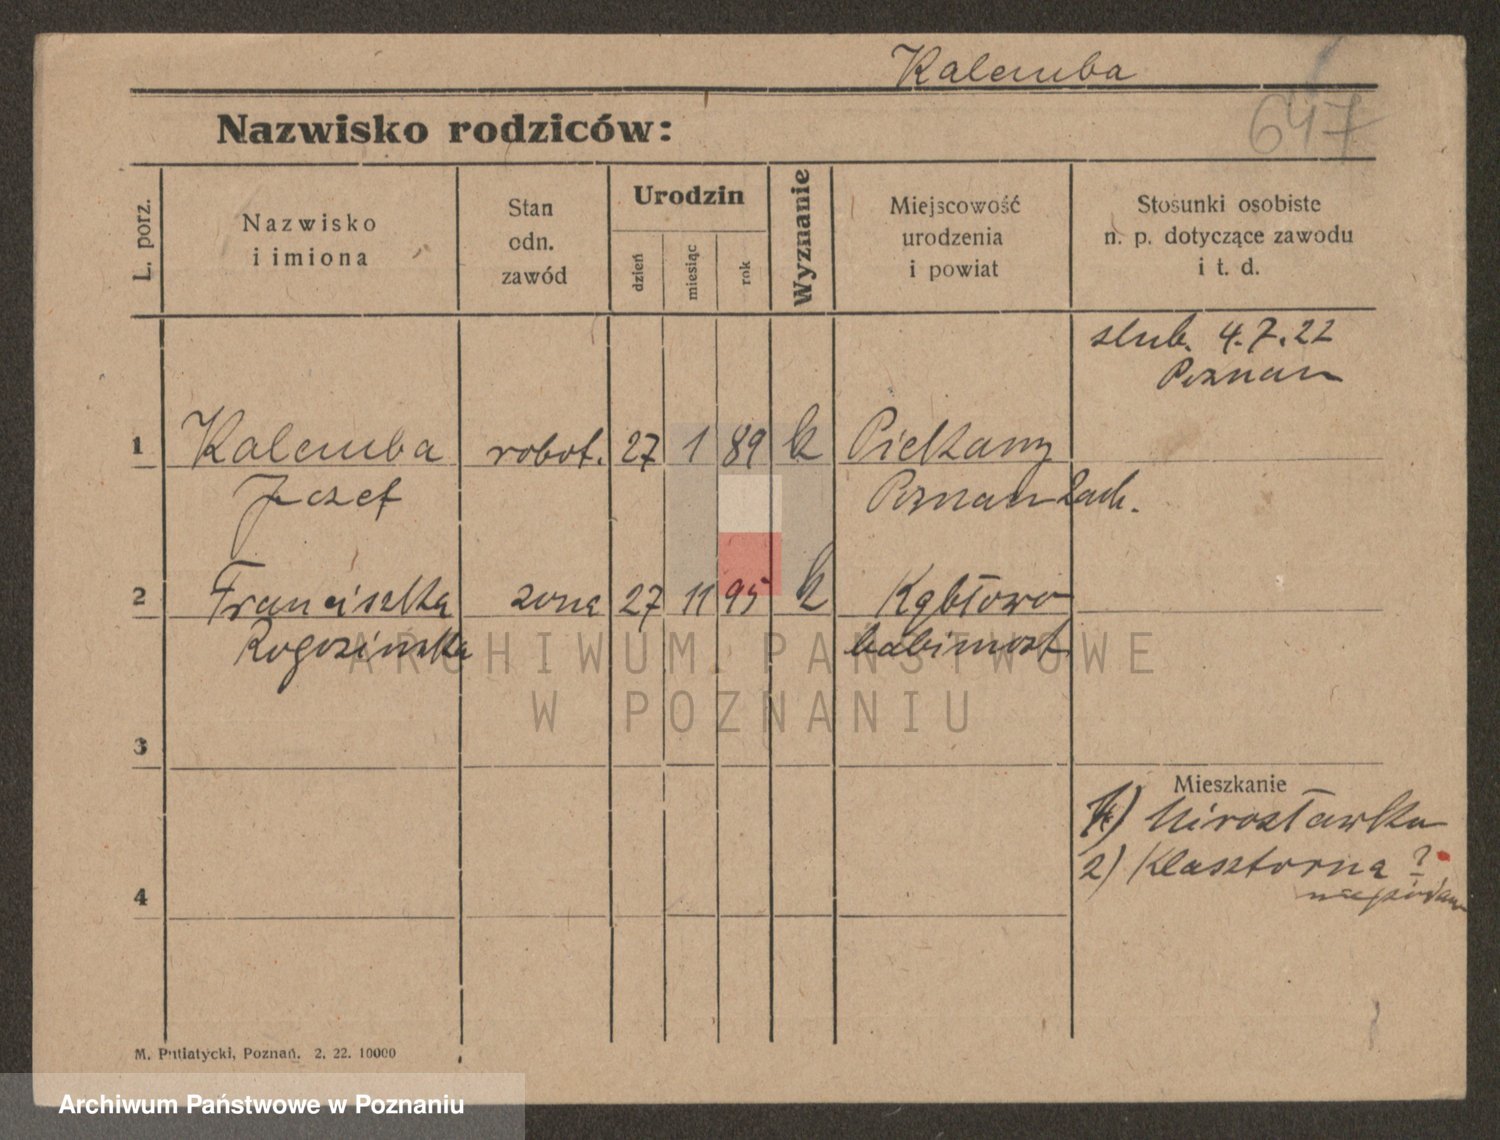 Kalemba
647
Nazwisko rodziców:
L. porz.
Nazwisko
i imiona
Stan
odn.
zawód
Urodzin
dzień
miesiąc
rok
Wyznanie
Miejscowość
urodzenia
i powiat
Stosunki osobiste
n. p. dotyczące zawodu
i t. d.
slub. 4.7.22
Poznan
1 Kalemba robot. 27 1 89 k Piekary
Jozef Poznan Zach.
2 Franciszka zona 27 11 95 k Kąbłowo
Rogozinska babimost
ARCHIWUM PAŃSTWOWE
W POZNANIU
3
Mieszkanie
1) Mirosławska
2) Klasztorna ?
4
M. Putiatycki, Poznań. 2. 22. 10000
Archiwum Państwowe w Poznaniu